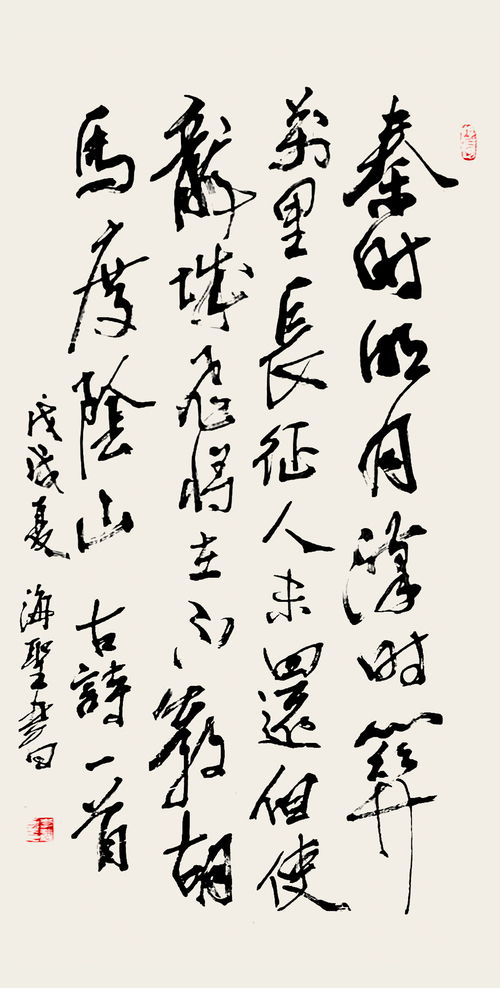 秦时明月漢时關
萬里長征人未還但使
龍城飛將在不教胡
馬度陰山 古詩一首
戊戌夏 海聖書